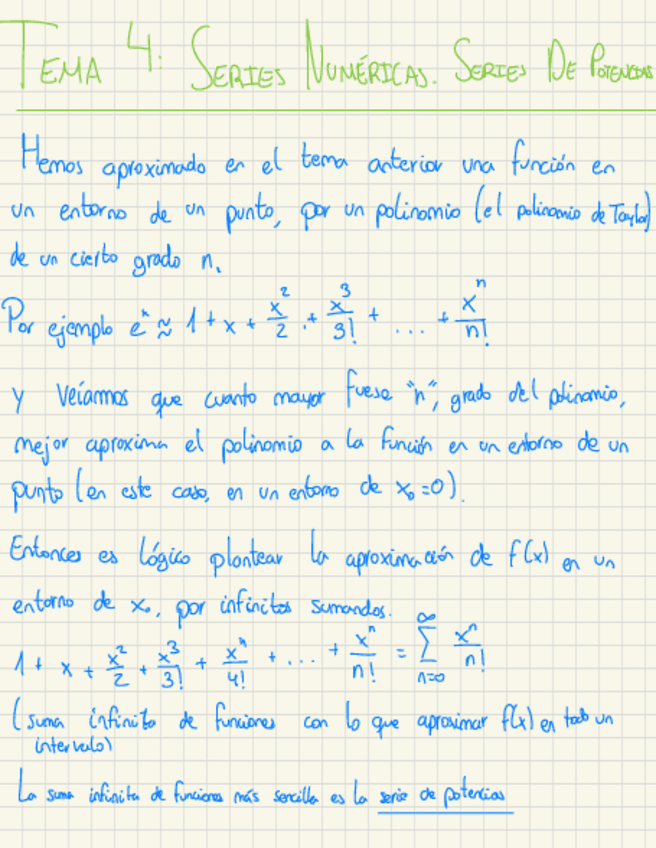 TEMA 4: SERIES NUMÉRICAS. SERIES DE POTENCIAS
Hemos aproximado en el tema anterior una función en
un entorno de un punto, por un polinomio (el polinomio de Taylor)
de un cierto grado n.
Por ejemplo e^x ≈ 1 + x + x^2/2 + x^3/3! + ... + x^n/n!
y veíamos que cuanto mayor fuese "n", grado del polinomio,
mejor aproxima el polinomio a la función en un entorno de un
punto (en este caso, en un entorno de x₀=0).
Entonces es lógico plantear la aproximación de f(x) en un
entorno de x₀, por infinitos sumandos.
1 + x + x^2/2 + x^3/3! + x^4/4! + ... + x^n/n! = ∑_{n=0}^{∞} x^n/n!
(suma infinita de funciones con lo que aproximar f(x) en todo un
intervalo)
La suma infinita de funciones más sencilla es la serie de potencias